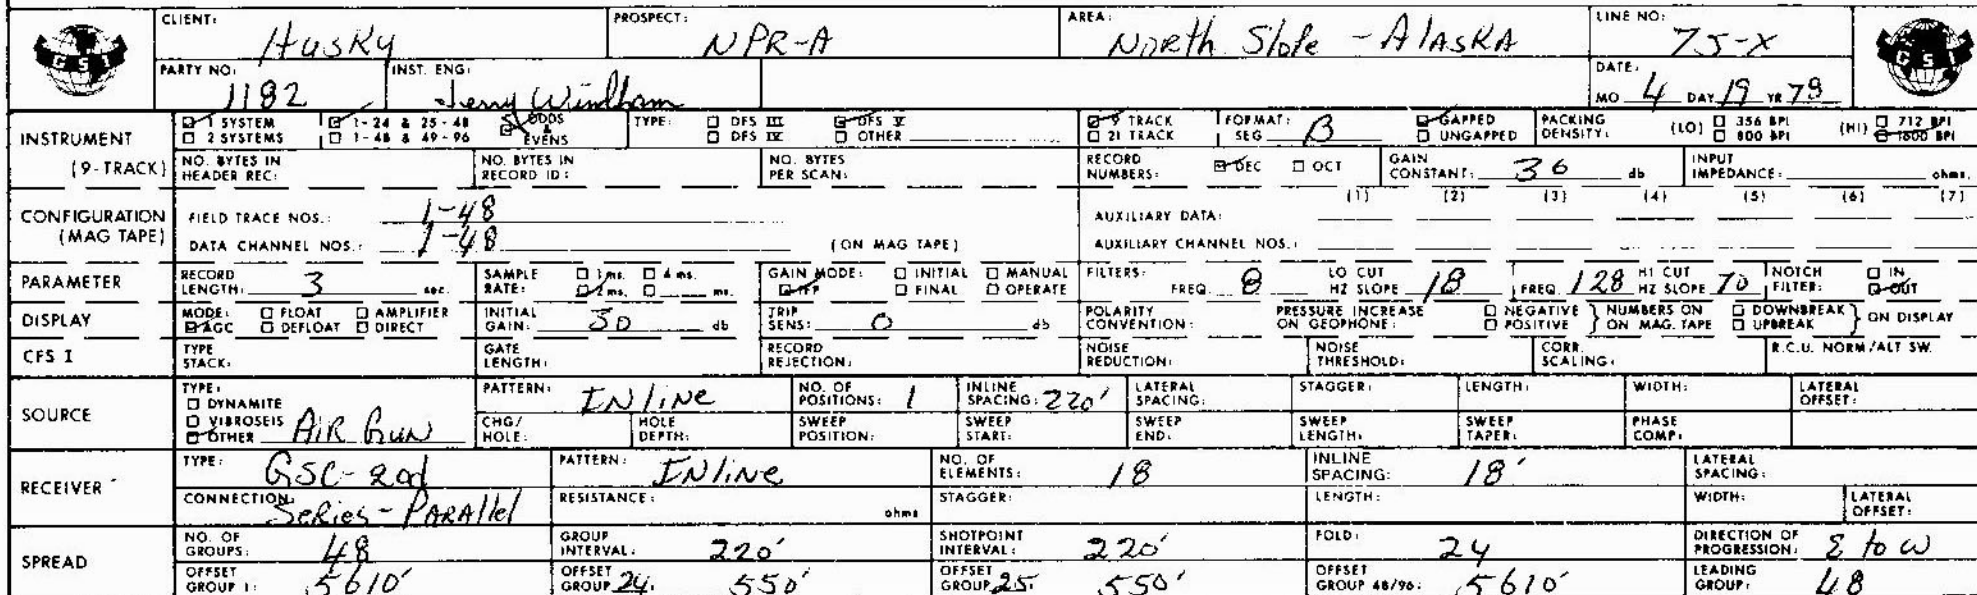 CLIENT: Husky PROSPECT: NPR-A AREA: North Slope - Alaska LINE NO: 75-X
GSI GSI
PARTY NO: 1182 INST. ENG: Jerry Windham DATE: MO 4 DAY 19 YR 78
INSTRUMENT (9-TRACK)
☑ 1 SYSTEM ☑ 1-24 & 25-48 ☑ ODDS & EVENS TYPE: ☐ DFS III ☑ DFS V ☑ 9 TRACK FORMAT: SEG B ☑ GAPPED PACKING DENSITY: (LO) ☐ 356 BPI (HI) ☐ 712 BPI
☐ 2 SYSTEMS ☐ 1-48 & 49-96 ☐ DFS IV ☐ OTHER ☐ 21 TRACK ☐ UNGAPPED ☐ 800 BPI ☑ 1600 BPI
NO. BYTES IN HEADER REC: NO. BYTES IN RECORD ID: NO. BYTES PER SCAN: RECORD NUMBERS: ☑ DEC ☐ OCT GAIN CONSTANT: 36 db INPUT IMPEDANCE: ohms.
CONFIGURATION (MAG TAPE)
(1) (2) (3) (4) (5) (6) (7)
FIELD TRACE NOS.: 1-48 AUXILIARY DATA:
DATA CHANNEL NOS.: 1-48 (ON MAG TAPE) AUXILIARY CHANNEL NOS.:
PARAMETER
RECORD LENGTH: 3 sec. SAMPLE RATE: ☐ 1 ms. ☐ 4 ms. ☑ 2 ms. ☐ ms. GAIN MODE: ☐ INITIAL ☐ MANUAL ☑ IFP ☐ FINAL ☐ OPERATE FILTERS: FREQ. 8 LO CUT HZ SLOPE 18 FREQ. 128 HI CUT HZ SLOPE 70 NOTCH FILTER: ☐ IN ☑ OUT
DISPLAY
MODE: ☐ FLOAT ☐ AMPLIFIER ☑ AGC ☐ DEFLOAT ☐ DIRECT INITIAL GAIN: 30 db TRIP SENS: 0 db POLARITY CONVENTION: PRESSURE INCREASE ON GEOPHONE: ☐ NEGATIVE ☐ POSITIVE } NUMBERS ON MAG. TAPE ☐ DOWNBREAK ☐ UPBREAK } ON DISPLAY
CFS I
TYPE STACK: GATE LENGTH: RECORD REJECTION: NOISE REDUCTION: NOISE THRESHOLD: CORR. SCALING: R.C.U. NORM/ALT SW.
SOURCE
TYPE: ☐ DYNAMITE ☐ VIBROSEIS ☑ OTHER Air Gun
PATTERN: Inline NO. OF POSITIONS: 1 INLINE SPACING: 220' LATERAL SPACING: STAGGER: LENGTH: WIDTH: LATERAL OFFSET:
CHG/HOLE: HOLE DEPTH: SWEEP POSITION: SWEEP START: SWEEP END: SWEEP LENGTH: SWEEP TAPER: PHASE COMP:
RECEIVER
TYPE: GSC-20d PATTERN: Inline NO. OF ELEMENTS: 18 INLINE SPACING: 18' LATERAL SPACING:
CONNECTION: Series-Parallel RESISTANCE: ohms STAGGER: LENGTH: WIDTH: LATERAL OFFSET:
SPREAD
NO. OF GROUPS: 48 GROUP INTERVAL: 220' SHOTPOINT INTERVAL: 220' FOLD: 24 DIRECTION OF PROGRESSION: E to W
OFFSET GROUP 1: 5610' OFFSET GROUP 24: 550' OFFSET GROUP 25: 550' OFFSET GROUP 48/96: 5610' LEADING GROUP: 48